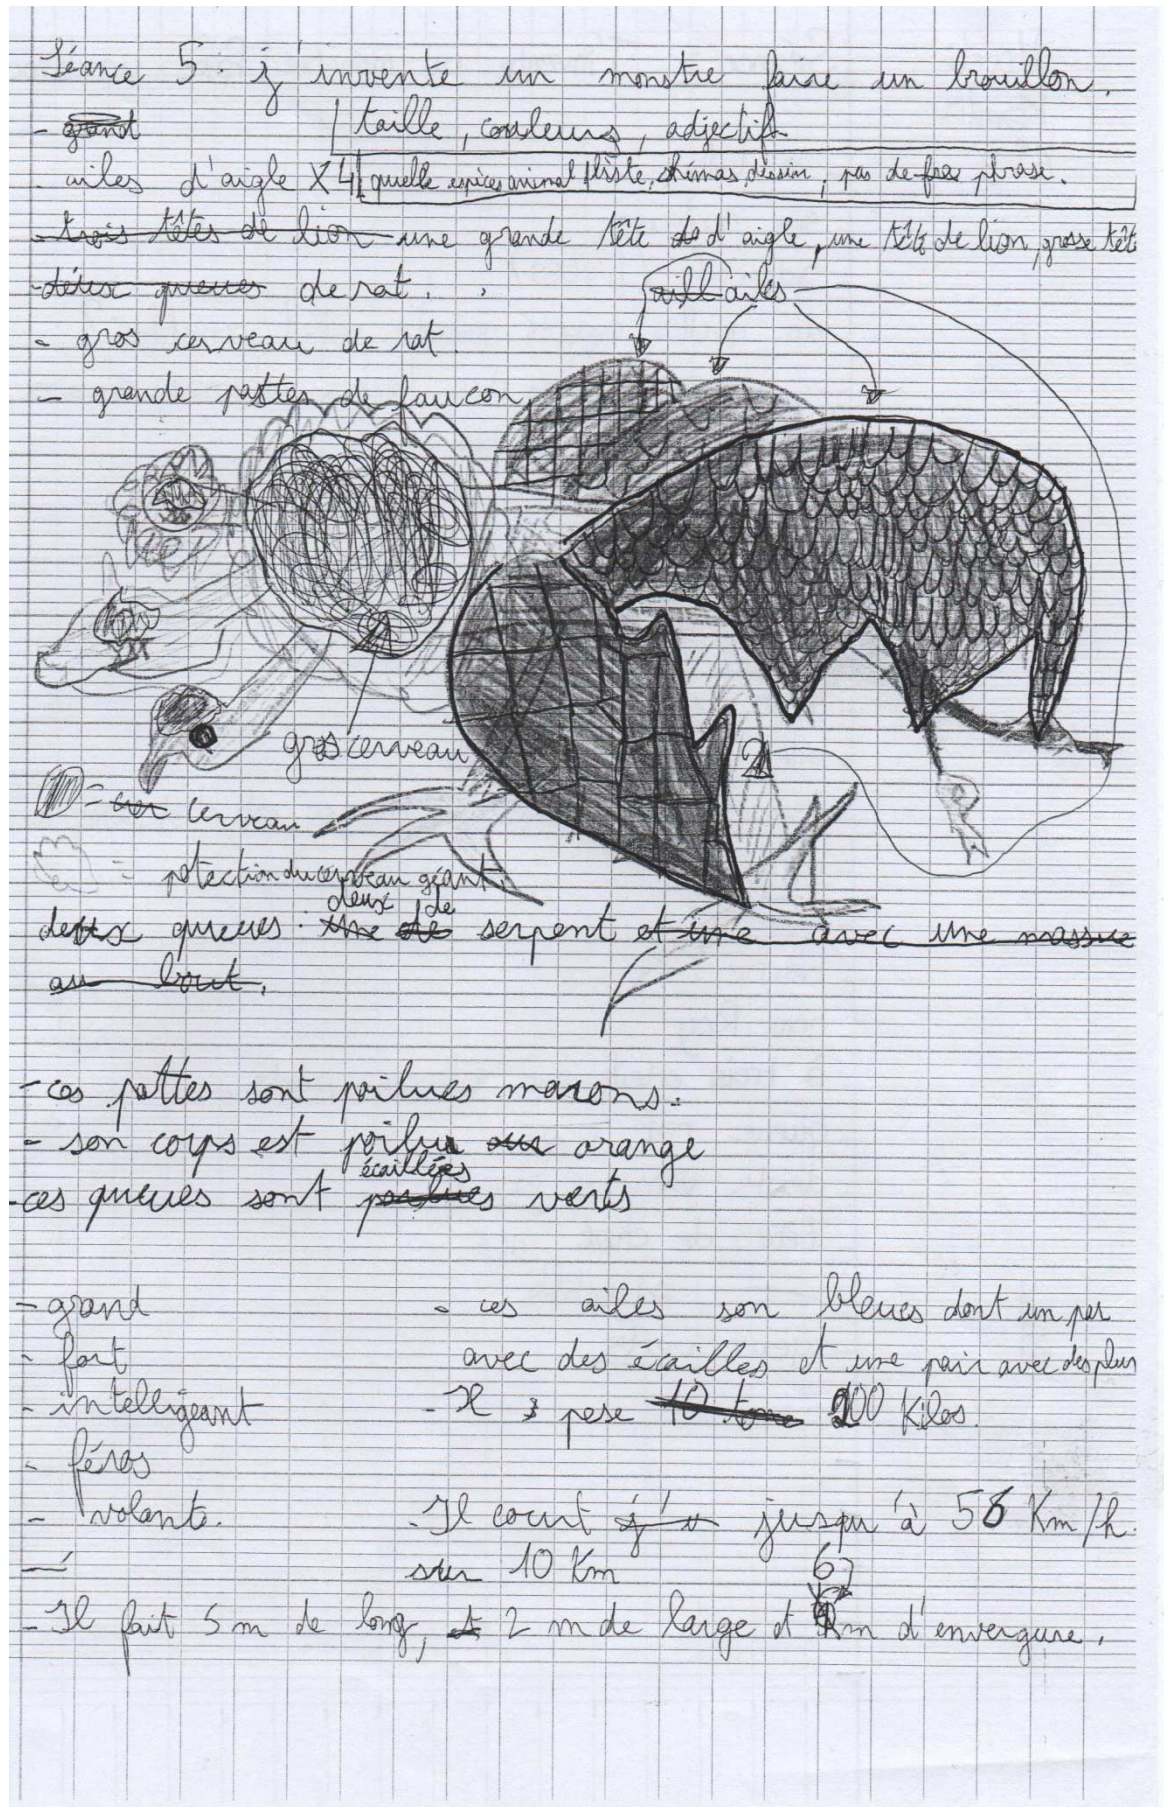 Séance 5 : j'invente un monstre faire un brouillon.
- grand
taille, couleurs, adjectif
- ailes d'aigle X4
quelle espèces animal, liste, shémas, déssin, pas de phrase.
- trois têtes de lion une grande tête de d'aigle, une tête de lion, grosse têt
- deux queues de rat.
ailes
- gros cerveau de rat.
- grande pattes de faucon
gros cerveau
= cer cerveau
= potection du cerveau géant.
deux de
deux queues : une de serpent et une avec une massue
au bout.
- ces pattes sont poilues marons.
- son corps est poilu orange
écaillées
- ces queues sont poilues verts
- grand
- fort
- intelligeant
- féros
- volante.
- ces ailes son bleues dont un per
avec des écailles et une pair avec des plus
- Il pese 10 tone 200 Kilos.
- Il court j'u jusqu'à 56 Km/h.
sur 10 Km
6
- Il fait 5 m de long, 2 m de large et m d'envergure.